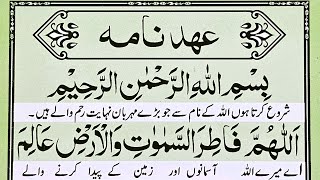 عہد نامہ
بِسْمِ اللّٰهِ الرَّحْمٰنِ الرَّحِيْمِ
شروع کرتا ہوں اللہ کے نام سے جو بڑے مہربان نہایت رحم والے ہیں۔
اَللّٰهُمَّ فَاطِرَ السَّمٰوٰتِ وَالْاَرْضِ عَالِمَ
اے میرے اللہ آسمانوں اور زمین کے پیدا کرنے والے